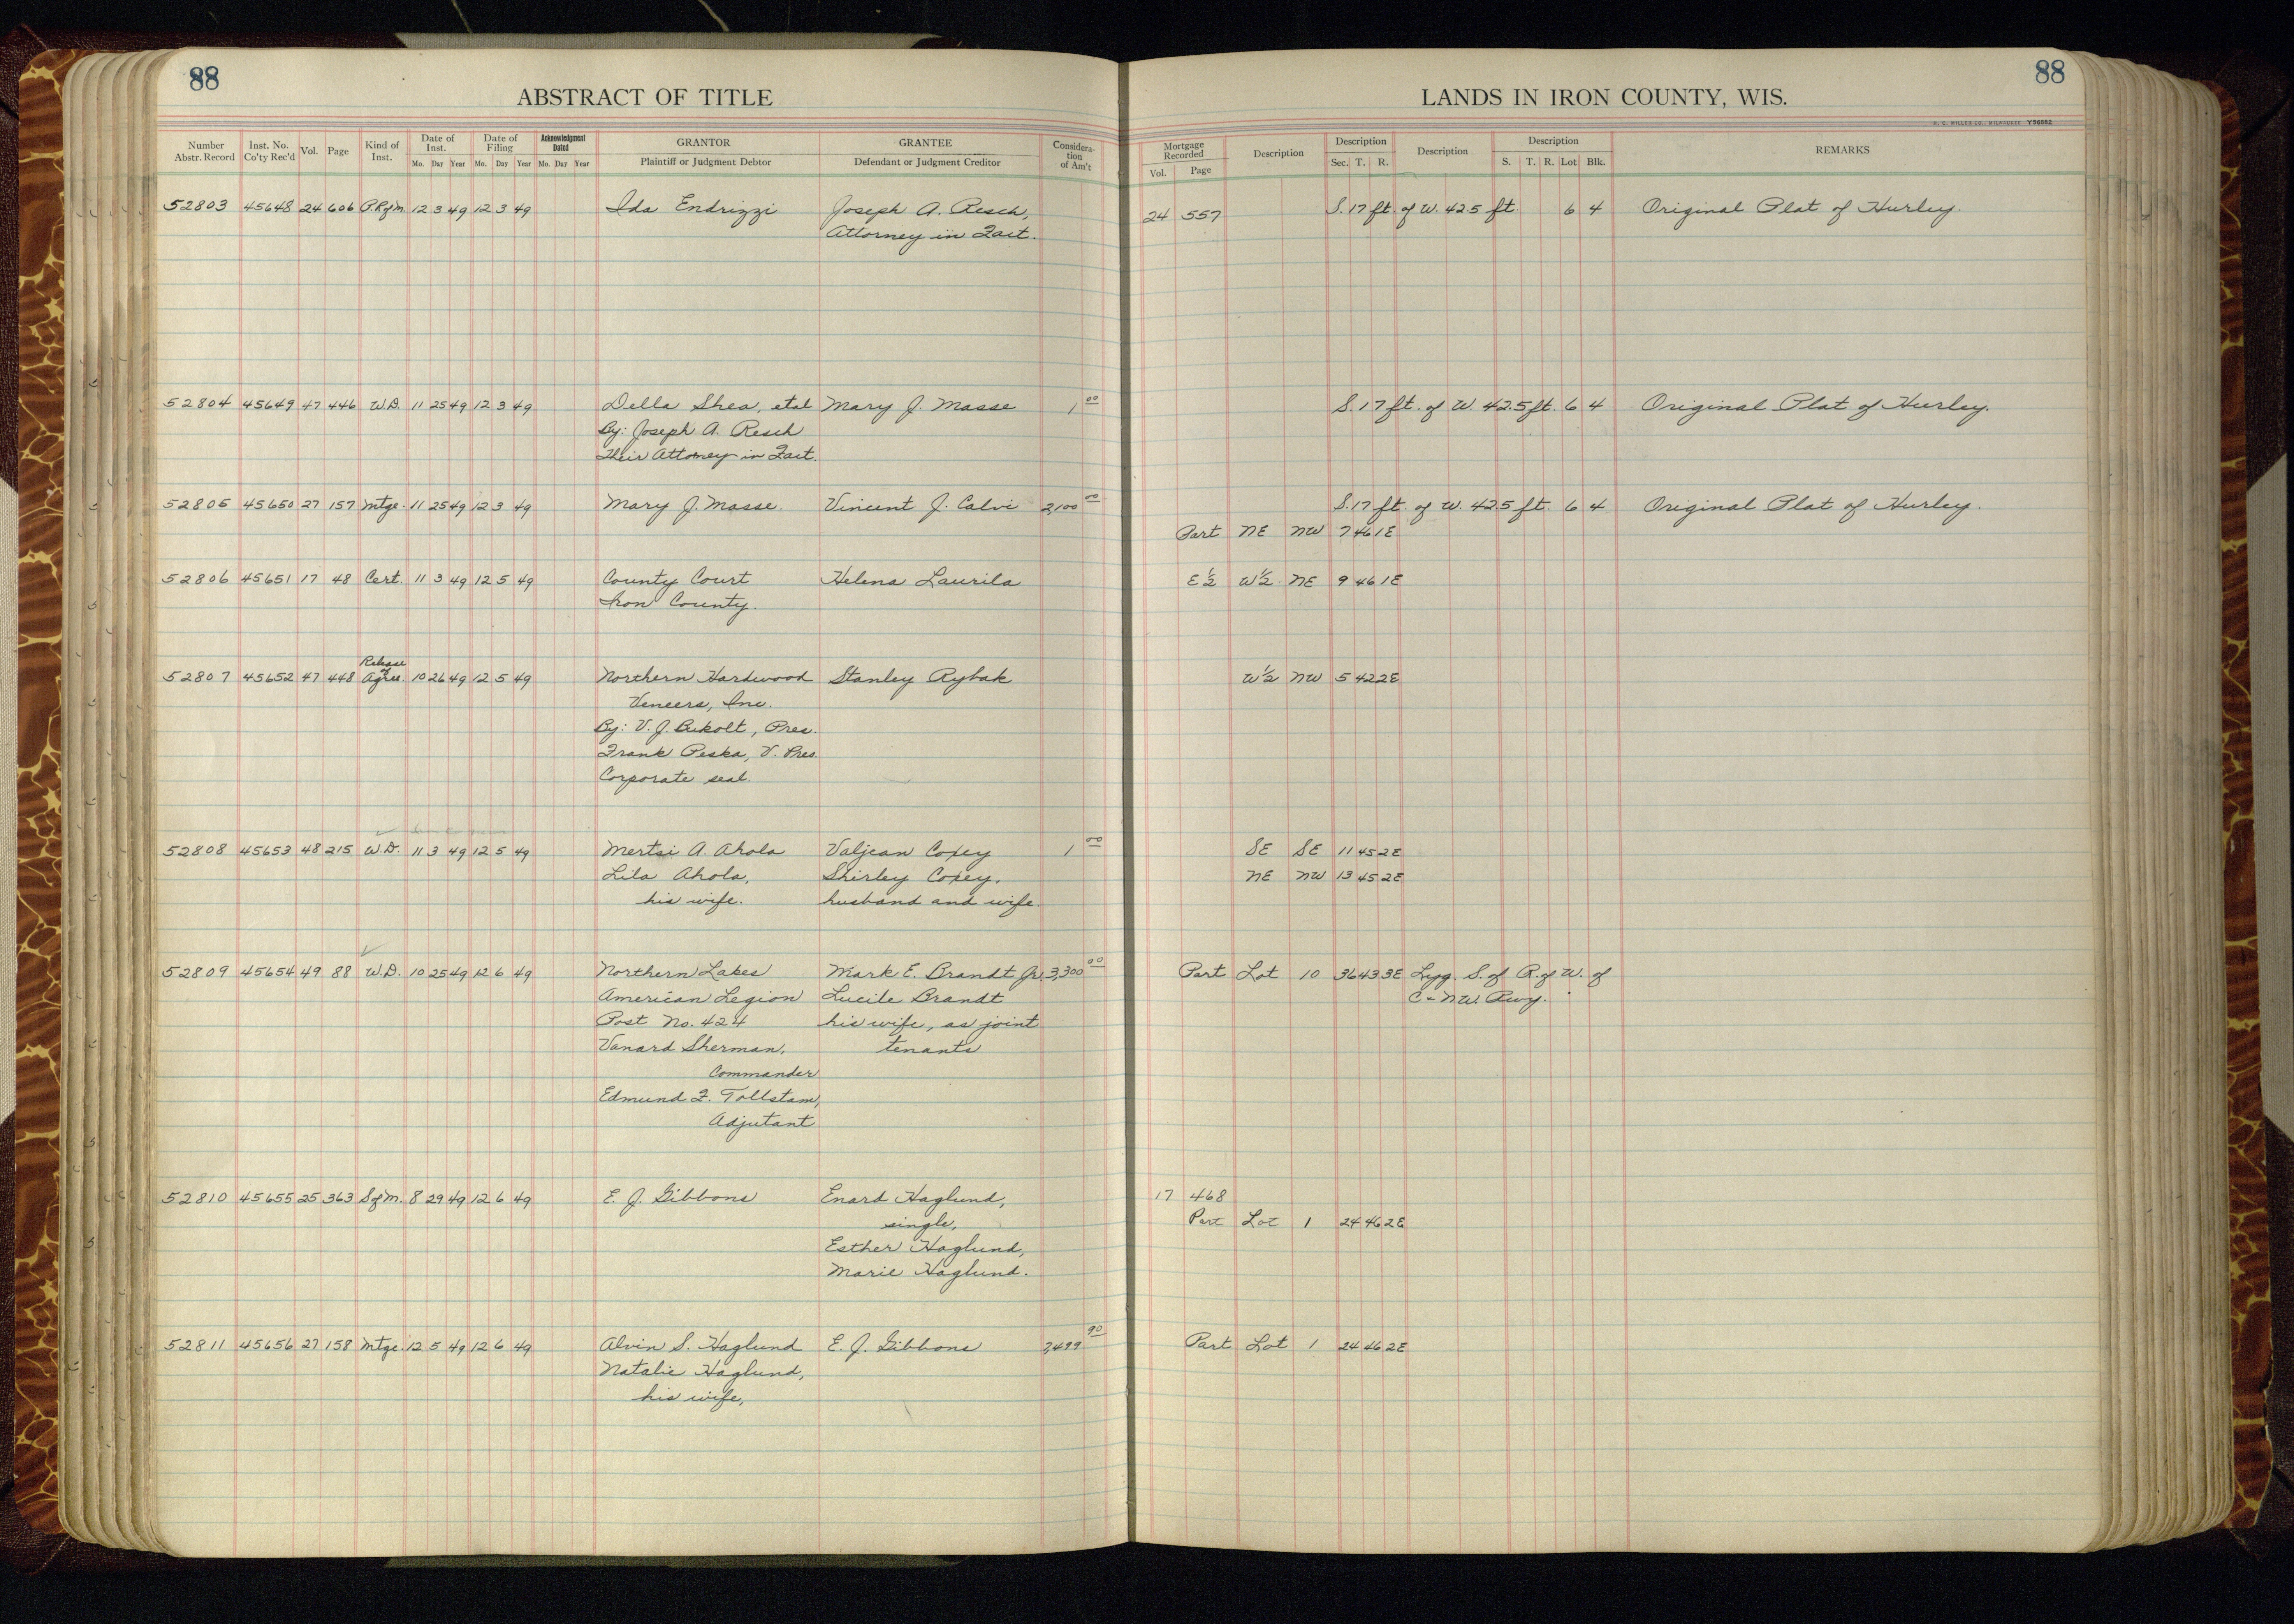 88
ABSTRACT OF TITLE
Number Abstr. Record
Inst. No. Co'ty Rec'd
Vol.
Page
Kind of Inst.
Date of Inst.
Mo. Day Year
Date of Filing
Mo. Day Year
Acknowledgment Dated
Mo. Day Year
GRANTOR
Plaintiff or Judgment Debtor
GRANTEE
Defendant or Judgment Creditor
Considera-
tion
of Am't
88
LANDS IN IRON COUNTY, WIS.
H. C. MILLER CO., MILWAUKEE Y56882
Mortgage Recorded
Vol. Page
Description
Description
Sec. T. R.
Description
Description
S. T. R. Lot Blk.
REMARKS
52803 45648 24 606 P.R of m. 12 3 49 12 3 49 Ida Endrizzi Joseph A. Resch, 24 557 S. 17 ft. of W. 42.5 ft. 6 4 Original Plat of Hurley.
Attorney in Fact.
52804 45649 47 446 W.D. 11 25 49 12 3 49 Della Shea, etal Mary J. Masse 1 00 S. 17 ft. of W. 42.5 ft. 6 4 Original Plat of Hurley.
By: Joseph A. Resch
Their Attorney in Fact.
52805 45650 27 157 Mtge. 11 25 49 12 3 49 Mary J. Masse. Vincent J. Calvi 2,100 00 S. 17 ft. of W. 42.5 ft. 6 4 Original Plat of Hurley.
Part NE NW 7 46 1E
52806 45651 17 48 Cert. 11 3 49 12 5 49 County Court Helena Laurila E½ W½ NE 9 46 1E
Iron County.
52807 45652 47 448 Release of Agree. 10 26 49 12 5 49 Northern Hardwood Stanley Rybak W½ NW 5 42 2E
Veneers, Inc.
By: V. J. Bukolt, Pres.
Frank Peska, V. Pres.
Corporate seal.
52808 45653 48 215 W.D. 11 3 49 12 5 49 Mertsi A. Ahola Valjean Coxey 1 00 SE SE 11 45 2E
Lila Ahola, Shirley Coxey, NE NW 13 45 2E
his wife. husband and wife.
52809 45654 49 88 W.D. 10 25 49 12 6 49 Northern Lakes Mark E. Brandt Jr. 3,300 00 Part Lot 10 36 43 3E Lyg. S. of R. of W. of
American Legion Lucile Brandt C & NW Rwy.
Post No. 424 his wife, as joint
Vanard Sherman, tenants
Commander
Edmund F. Tollstam,
Adjutant
52810 45655 25 363 S of m. 8 29 49 12 6 49 E. J. Gibbons Enard Haglund, 17 468
single, Part Lot 1 24 46 2E
Esther Haglund,
Marie Haglund.
52811 45656 27 158 Mtge. 12 5 49 12 6 49 Alvin S. Haglund E. J. Gibbons 90 Part Lot 1 24 46 2E
Natalie Haglund,
his wife,